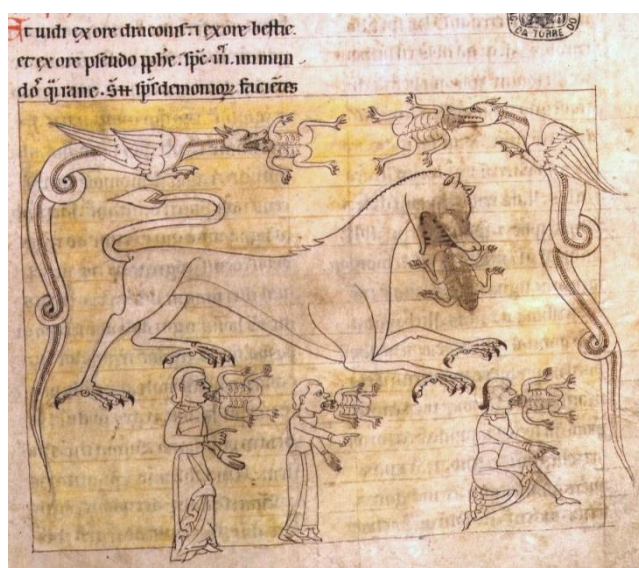 At uidi ex ore draconis. ⁊ ex ore bestie.
et ex ore pseudo pphe. spc. iii. inmun
dos qi rane. Sȳt sps demonioꝝ faciētes
A TORRE DO